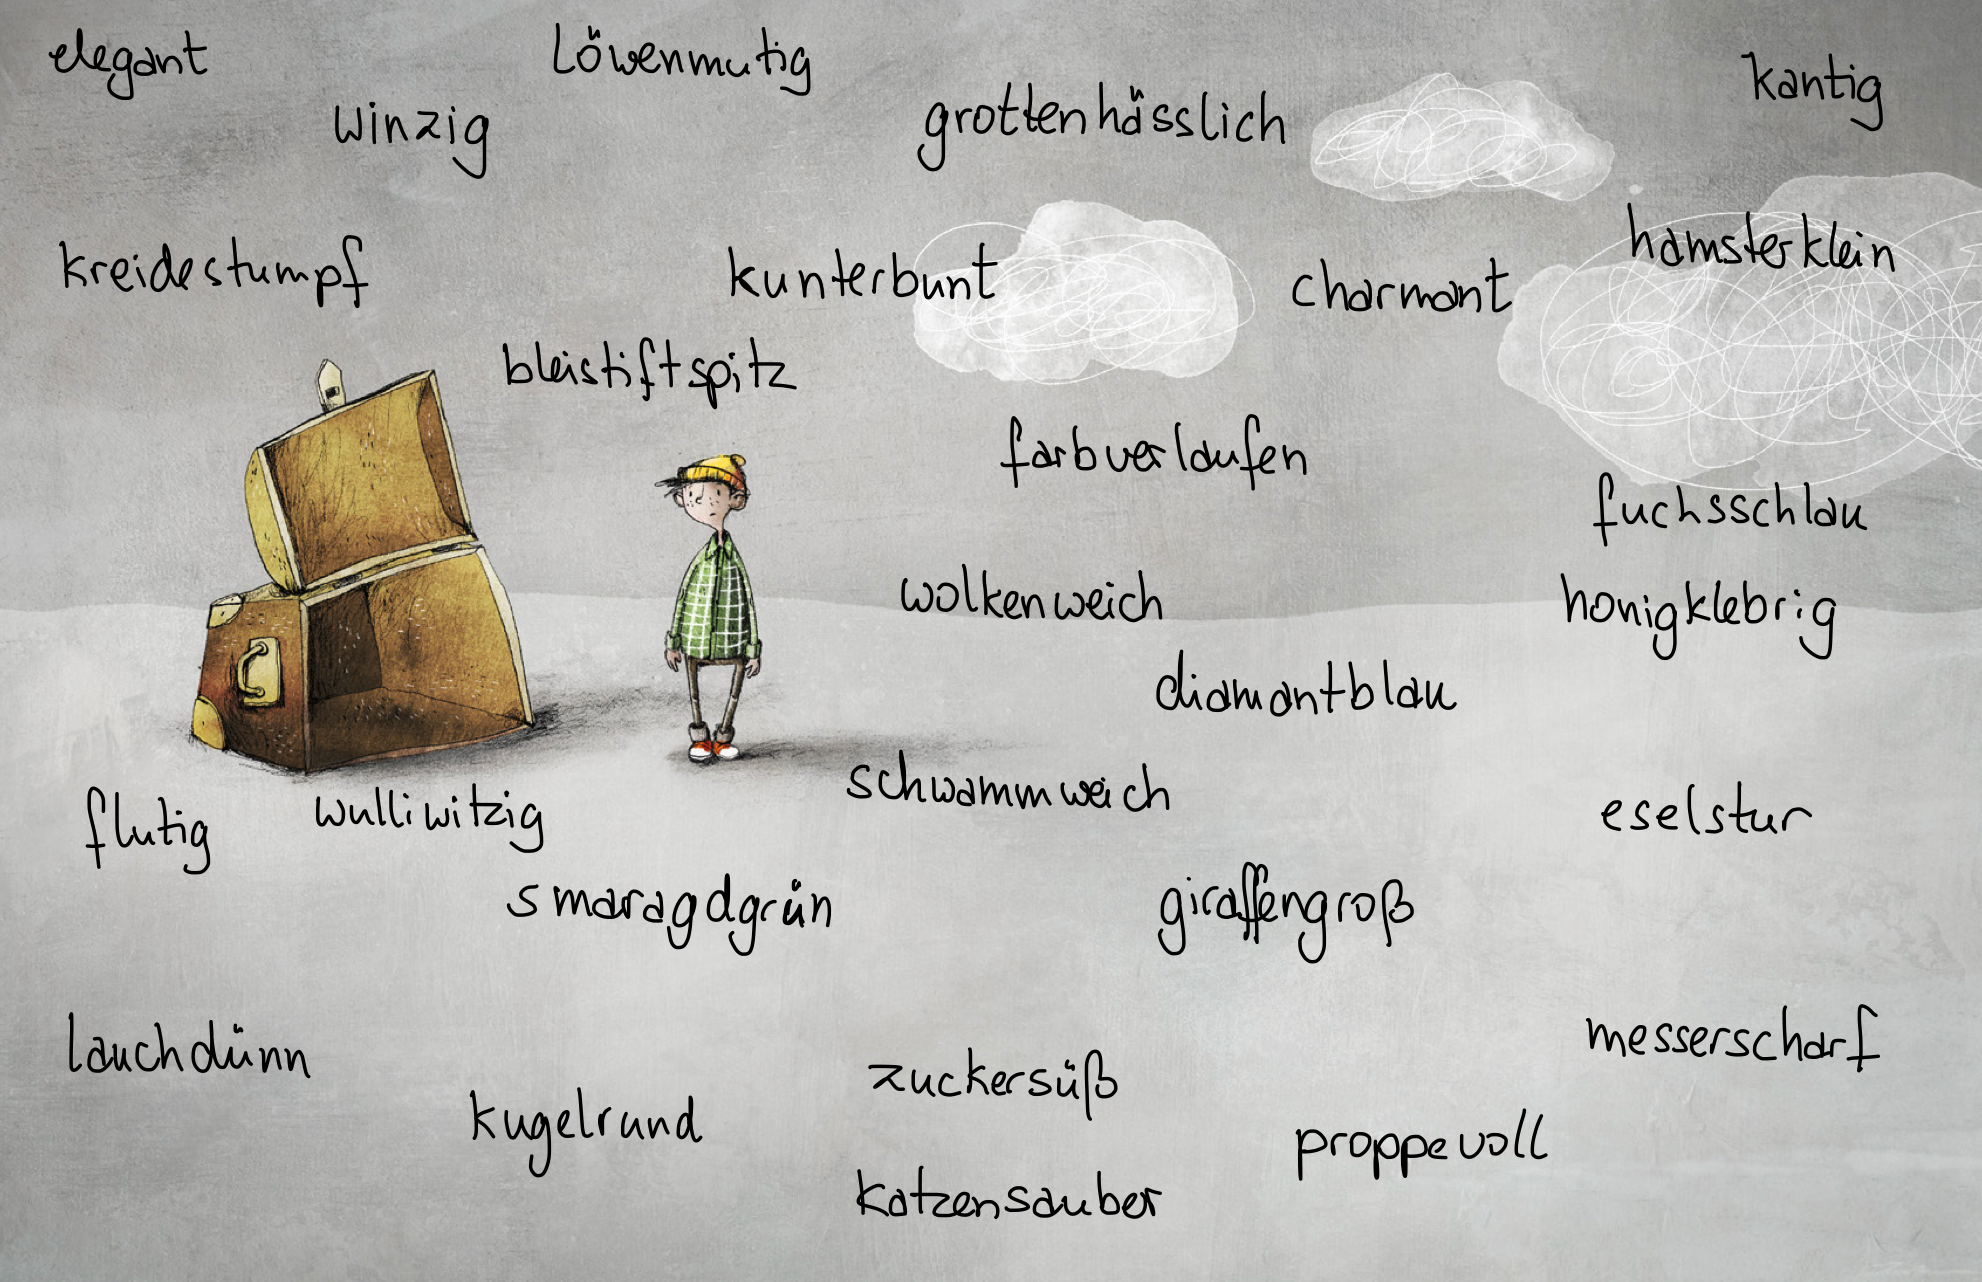 elegant
Löwenmutig
kantig
winzig
grottenhässlich
hamsterklein
kreidestumpf
kunterbunt
charmant
bleistiftspitz
farbverlaufen
fuchsschlau
wolkenweich
honigklebrig
diamantblau
schwammweich
flutig
wulliwitzig
eselstur
smaragdgrün
giraffengroß
lauchdünn
messerscharf
zuckersüß
kugelrund
proppevoll
katzensauber